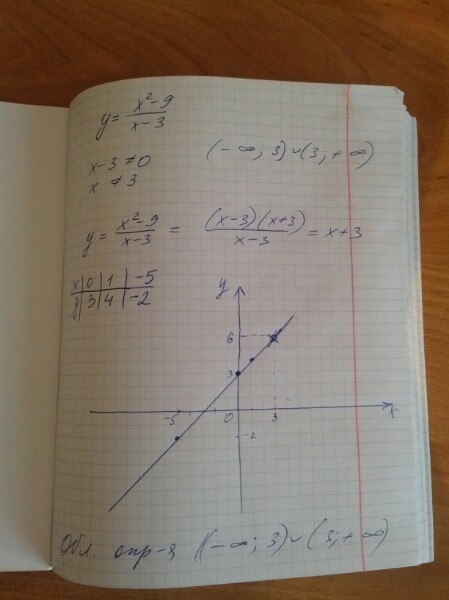 y = x²-9 / x-3
x-3 ≠ 0
(-∞; 3) ∪ (3; +∞)
x ≠ 3
y = x²-9 / x-3 = (x-3)(x+3) / x-3 = x+3
x | 0 | 1 | -5
y | 3 | 4 | -2
y
6
3
-5 0 3 x
-2
Обл. опр-я (-∞; 3) ∪ (3; +∞)